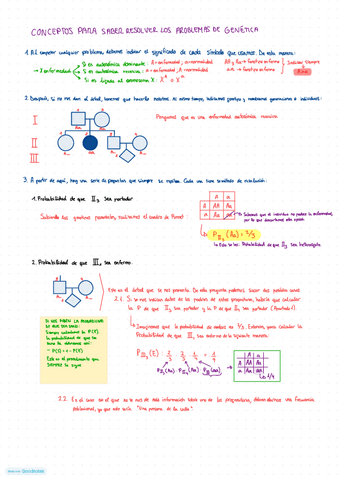 CONCEPTOS PARA SABER RESOLVER LOS PROBLEMAS DE GENÉTICA
1. Al empezar cualquier problema, debemos indicar el significado de cada símbolo que usamos. De esta manera:
→ 2 enfermedad
Si es autosómica dominante: A = enfermedad, a = normalidad
Si es autosómica recesiva: a = enfermedad, A = normalidad
Si es ligada al cromosoma X: Xᴬ = Xᵃ
AA y Aa → fenotipo enfermo
aa → fenotipo enfermo
Indicar siempre
A>a
2. Después, si no nos dan el árbol, tenemos que hacerlo nosotros. Al mismo tiempo, indicamos genotipos y numeramos generaciones e individuos:
I
II
III
Pongamos que es una enfermedad autosómica recesiva
3. A partir de aquí, hay una serie de preguntas que siempre se repiten. Cada una tiene un método de resolución:
1. Probabilidad de que II₃ sea portador
Sabiendo los genotipos parentales, realizamos el cuadro de Punnet:
A a
A AA Aa
a Aa aa
Sabemos que el individuo no padece la enfermedad, por lo que descartamos esta opción
P II₃ (Aa) = 2/3
la Esto se lee: Probabilidad de que II₃ sea heterozigoto
2. Probabilidad de que III₁ sea enfermo.
Este es el árbol que se nos presenta. De esta pregunta podemos sacar dos posibles casos.
2.1. Si se nos indican datos de los padres de estos progenitores, habría que calcular
la P. de que II₃ sea portador y la P. de que II₄ sea portador (Apartado 1).
Imaginemos que la probabilidad de ambos es 2/3. Entonces, para calcular la
Probabilidad de que III₁ sea enfermo de la siguiente manera:
SI NOS PIDEN LA PROBABILIDAD
DE QUE SEA SANO:
Siempre calculamos la P(E).
P(S) = 1 - P(E)
Este es el procedimiento que
SIEMPRE se sigue
P III₁ (E) : 2/3 · 2/3 · 1/4 = 1/9
P II₃ (Aa) · P II₄ (Aa) · P III₁ (aa)
A a
A AA Aa
a Aa aa
→ 1/4
2.2. En el caso en el que no se nos dé más información sobre uno de los progenitores, deberán darnos una frecuencia
poblacional, ya que éste sería "Una persona de la calle".